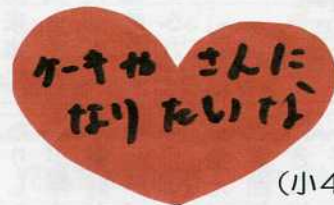 ケーキやさんに
なりたいな
(小4